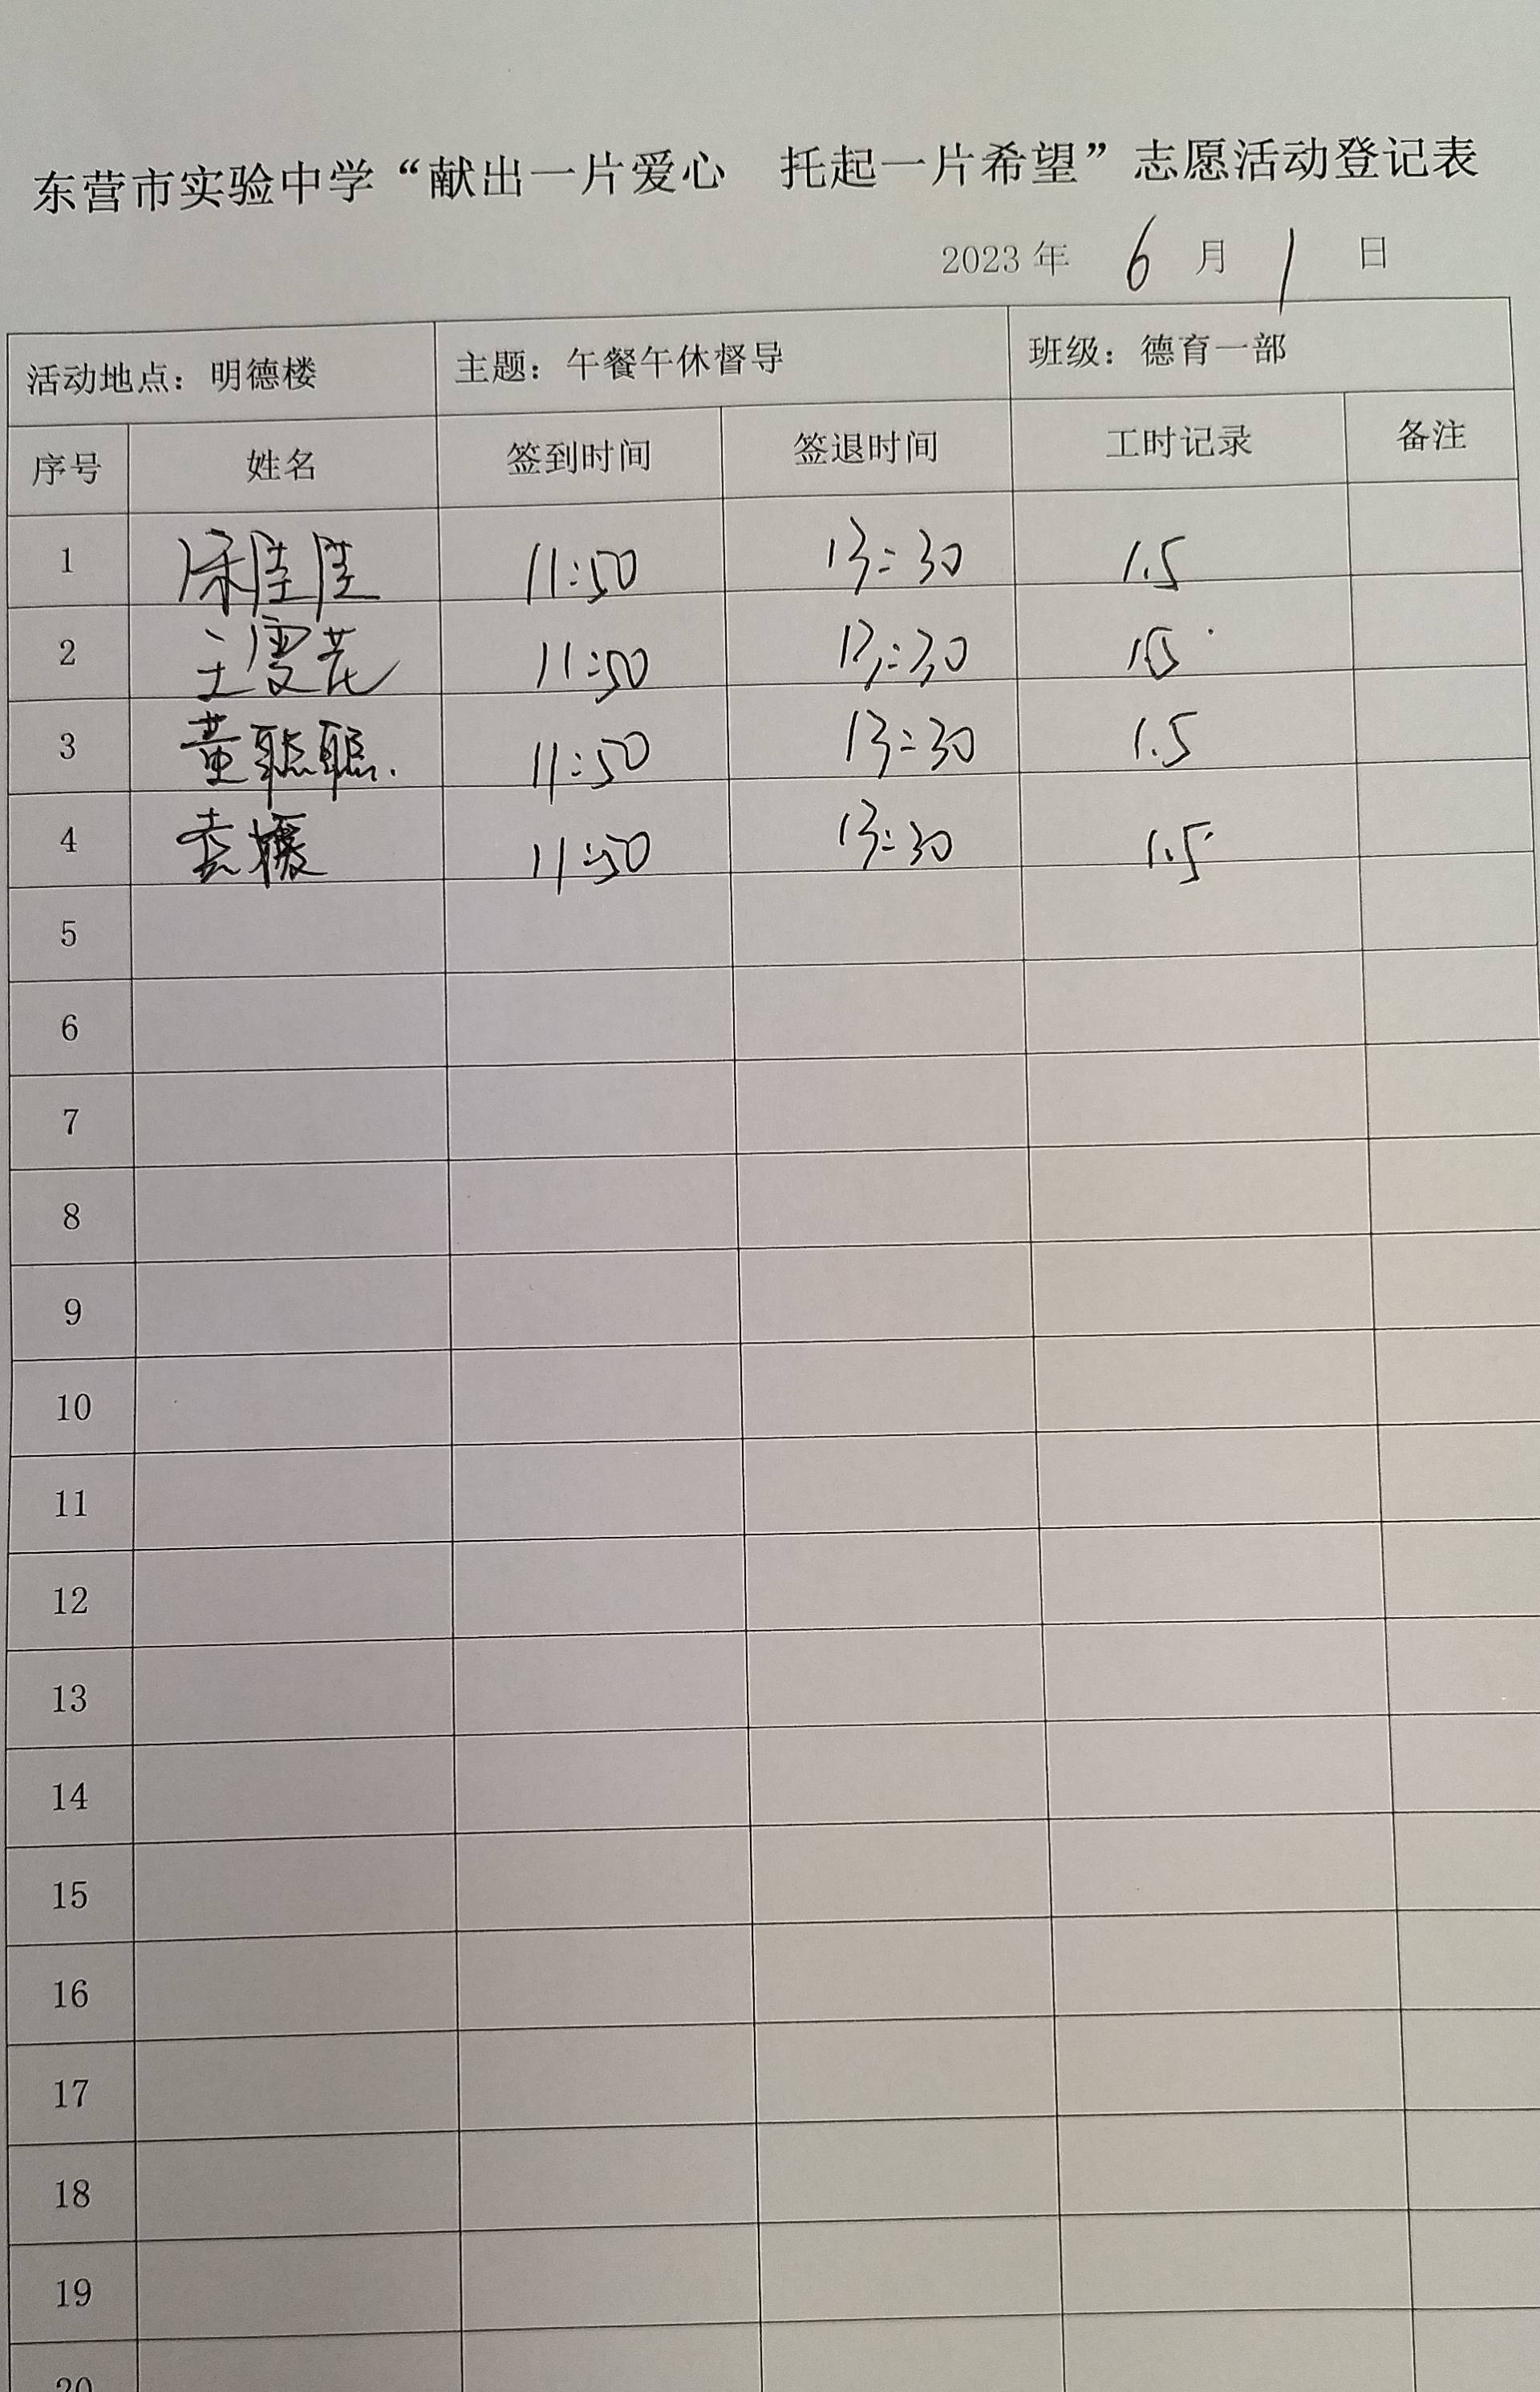 东营市实验中学“献出一片爱心 托起一片希望”志愿活动登记表
2023 年 6 月 1 日
活动地点：明德楼 主题：午餐午休督导 班级：德育一部
序号 姓名 签到时间 签退时间 工时记录 备注
1 宋佳佳 11:50 13:30 1.5
2 王雯芘 11:50 13:30 1.5
3 董聪聪 11:50 13:30 1.5
4 袁媛 11:50 13:30 1.5
5
6
7
8
9
10
11
12
13
14
15
16
17
18
19
20